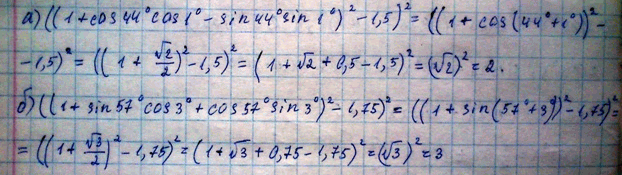 а) ((1+cos44°cos1° - sin44°sin1°)² - 1,5)² = ((1 + cos(44°+1°))² -
- 1,5)² = ((1 + √2/2)² - 1,5)² = (1 + √2 + 0,5 - 1,5)² = (√2)² = 2.
б) ((1 + sin57°cos3° + cos57°sin3°)² - 1,75)² = ((1 + sin(57°+3°))² - 1,75)² =
= ((1 + √3/2)² - 1,75)² = (1 + √3 + 0,75 - 1,75)² = (√3)² = 3